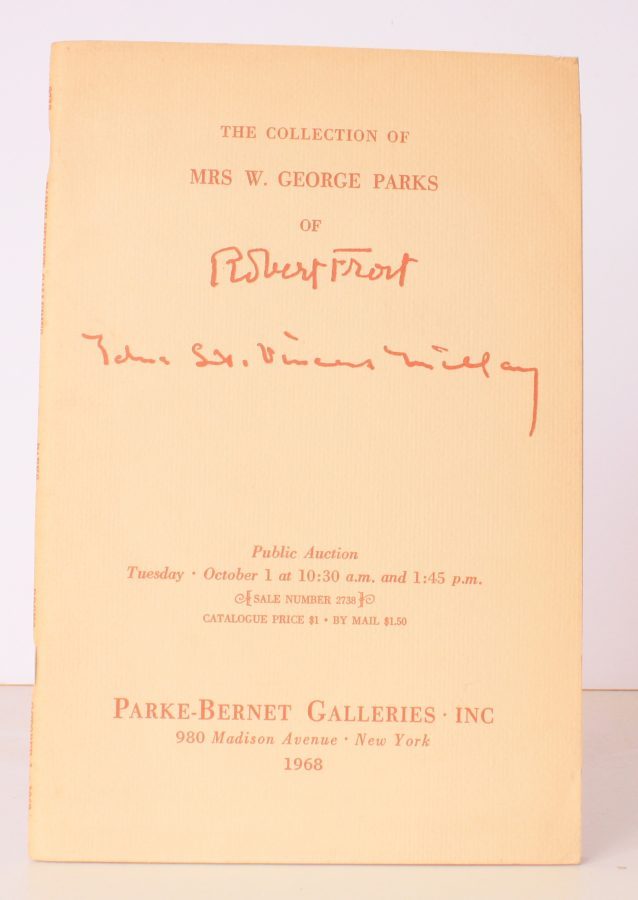 THE COLLECTION OF
MRS W. GEORGE PARKS
OF
Robert Frost
Edna St. Vincent Millay
Public Auction
Tuesday · October 1 at 10:30 a.m. and 1:45 p.m.
SALE NUMBER 2738
CATALOGUE PRICE $1 • BY MAIL $1.50
PARKE-BERNET GALLERIES · INC
980 Madison Avenue · New York
1968